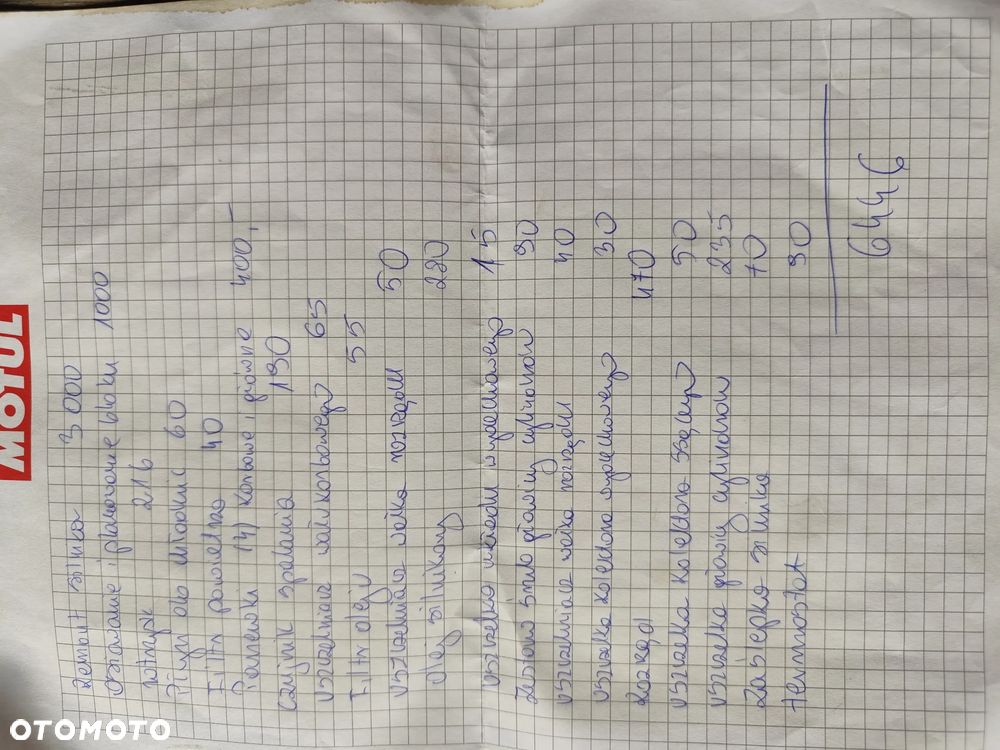 MOTUL
Remont silnika 3 000
osiowanie i planowanie bloku 1000
216
Płyn do chłodnic 60
Filtr powietrza 40
Panewki (4) korbowe i główne 400,-
czujnik spalania 190
uszczelniacz wału korbowego 65
Filtr oleju 55
uszczelniacz wałka rozrządu 50
olej silnikowy 280
uszczelka układu wydechowego 15
Zestaw śrub głowicy cylindrów 90
uszczelniacz wałka rozrządu 40
uszczelka kolektora wydechowego 30
Rozrząd 470
uszczelka kolektora ssącego 50
uszczelka głowicy cylindrów 235
Zaślepka silnika 70
Termostat 90
6446
OTOMOTO